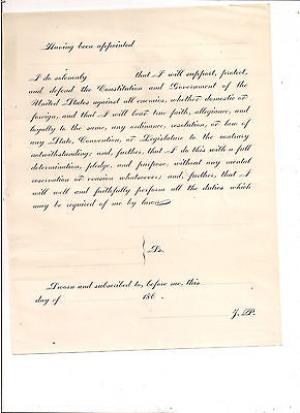 Having been appointed
I do solemnly that I will support, protect,
and defend the Constitution and Government of the
United States against all enemies, whether domestic or
foreign, and that I will bear true faith, allegiance, and
loyalty to the same, any ordinance, resolution, or law of
any State, Convention, or Legislature to the contrary
notwithstanding; and, further, that I do this with a full
determination, pledge, and purpose, without any mental
reservation or evasion whatsoever; and, further, that I
will well and faithfully perform all the duties which
may be required of me by law.
} Ss.
Sworn and subscribed to, before me, this
day of 186 .
J. P.